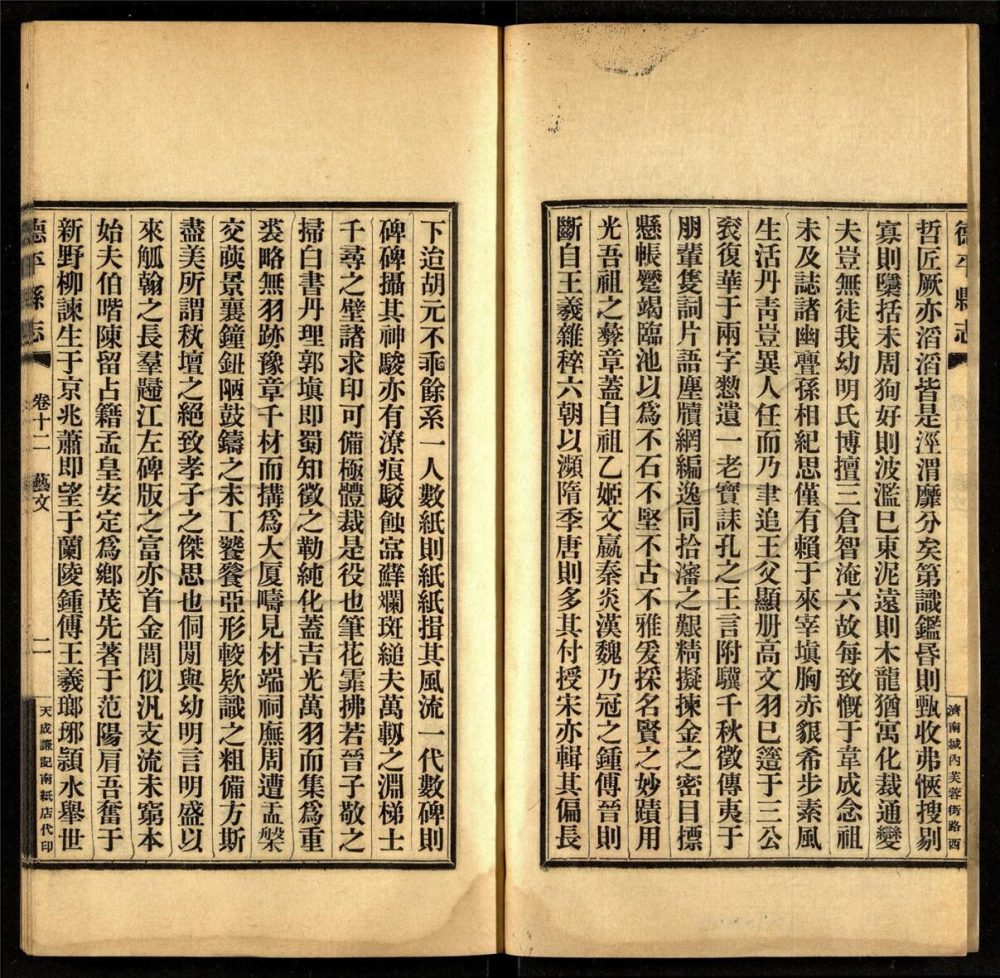 德平縣志
濟南城內芙蓉街路西
哲匠厥亦滔滔皆是涇渭靡分矣第識鑑昏則甄收弗愜搜剔
寡則櫽括未周狥好則波濫已東泥遠則木龍猶寓化裁通變
夫豈無徒我幼明氏博擅三倉智淹六故每致慨于韋成念祖
未及誌諸幽亹孫相紀思僅有賴于來宰塡胸赤貇希步素風
生活丹靑豈異人任而乃聿追王父顯册高文羽巳簉于三公
袞復華于兩字憖遺一老寶誄孔之王言附驥千秋徵傳夷于
朋輩隻詞片語塵牘網編逸同拾瀋之艱精擬揀金之密目摽
懸帳蹩竭臨池以爲不石不堅不古不雅爰採名賢之妙蹟用
光吾祖之彜章蓋自祖乙姬文嬴秦炎漢魏乃冠之鍾傅晉則
斷自王羲雜稡六朝以瀕隋季唐則多其付授宋亦輯其偏長
下迨胡元不乖餘系一人數紙則紙紙揖其風流一代數碑則
碑碑攝其神駿亦有潦痕駁蝕富蘚斕斑縋夫萬軔之淵梯士
千尋之壁諸求印可備極體裁是役也筆花霏拂若晉子敬之
掃白書丹理郭塡即蜀知徵之勒純化蓋吉光萬羽而集爲重
裘略無羽跡豫章千材而搆爲大厦疇見材端祠廡周遭盂槃
交暎景襄鐘鈕陋鼓鑄之未工饕餮亞形較欵識之粗備方斯
盡美所謂秋壇之絕致孝子之傑思也侗閒與幼明言明盛以
來觚翰之長羣蹝江左碑版之富亦首金閶似汎支流未窮本
始夫伯喈陳留占籍孟皇安定爲鄕茂先著于范陽肩吾奮于
新野柳諫生于京兆蕭即望于蘭陵鍾傅王羲瑯琊潁水舉世
德平縣志
卷十二
藝文
二
天成謙記南紙店代印